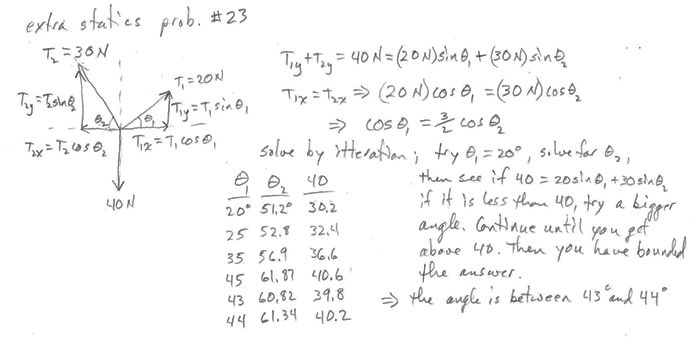 extra statics prob. #23
T₂ = 30N
T₁ = 20N
T₂y = T₂sinθ₂
T₁y = T₁ sinθ₁
θ₂
θ₁
T₂x = T₂cosθ₂
T₁x = T₁cosθ₁
40N
T₁y + T₂y = 40N = (20N)sinθ₁ + (30N)sinθ₂
T₁x = T₂x ⇒ (20N)cosθ₁ = (30N)cosθ₂
⇒ cosθ₁ = 3/2 cosθ₂
solve by itteration; try θ₁ = 20°, solve for θ₂,
then see if 40 = 20sinθ₁ + 30sinθ₂
if it is less than 40, try a bigger
angle. Continue until you get
above 40. Then you have bounded
the answer.
⇒ the angle is between 43° and 44°
θ₁ θ₂ 40
20° 51.2° 30.2
25 52.8 32.4
35 56.9 36.6
45 61.87 40.6
43 60.82 39.8
44 61.34 40.2